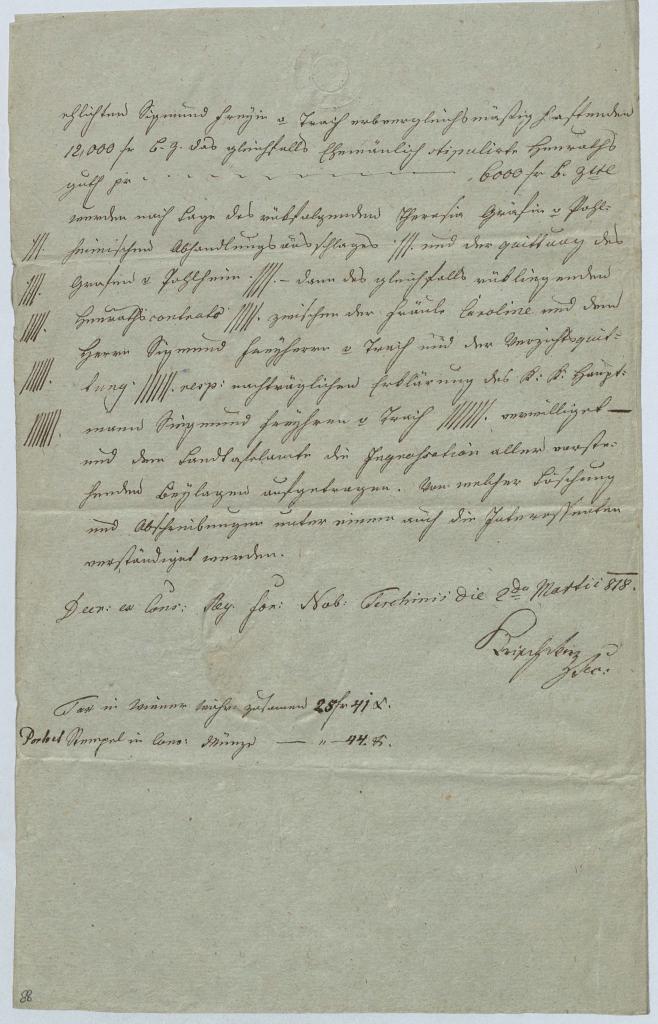 ehlichten Sigmund Freyin v Trach erbvergleichsmäßig haftenden
12,000 fr b. z. das gleichfalls Ehemänlich stipulirte Heuraths
guth pr - - - - - - 6000 fr b. Zttl
werden nach Lage des rükfolgenden Theresia Gräfin v Pohl-
///. heimischen Abhandlungsausschlages ///. und der quittung des
////. Grafen v Pohlheim ////. – dann des gleichfalls rükliegenden
/////. Heurathscontrats /////. zwischen der Fräule Caroline und dem
Herrn Sigmund Freyherrn v Trach und der Verzichtsquit-
//////. tung //////. resp: nachträglichen Erklärung des K: K: Haupt-
///////. mann Siegmund Freyhrrn v Trach ///////. verwilliget —
und dem Landtafelamte die Ingrossation aller vorste-
henden Beylagen aufgetragen. Von welcher Löschung
und Abschreibungen unter einem auch die Interessenten
verständiget werden.
Decr: ex Cons: Reg. For: Nob: Teschinii die 2da Martii 818.
Secr:
Tax in Wiener Währ. zusamen 25 fr 41 x.
Stempel in Conv: Münze — " — 44. x.